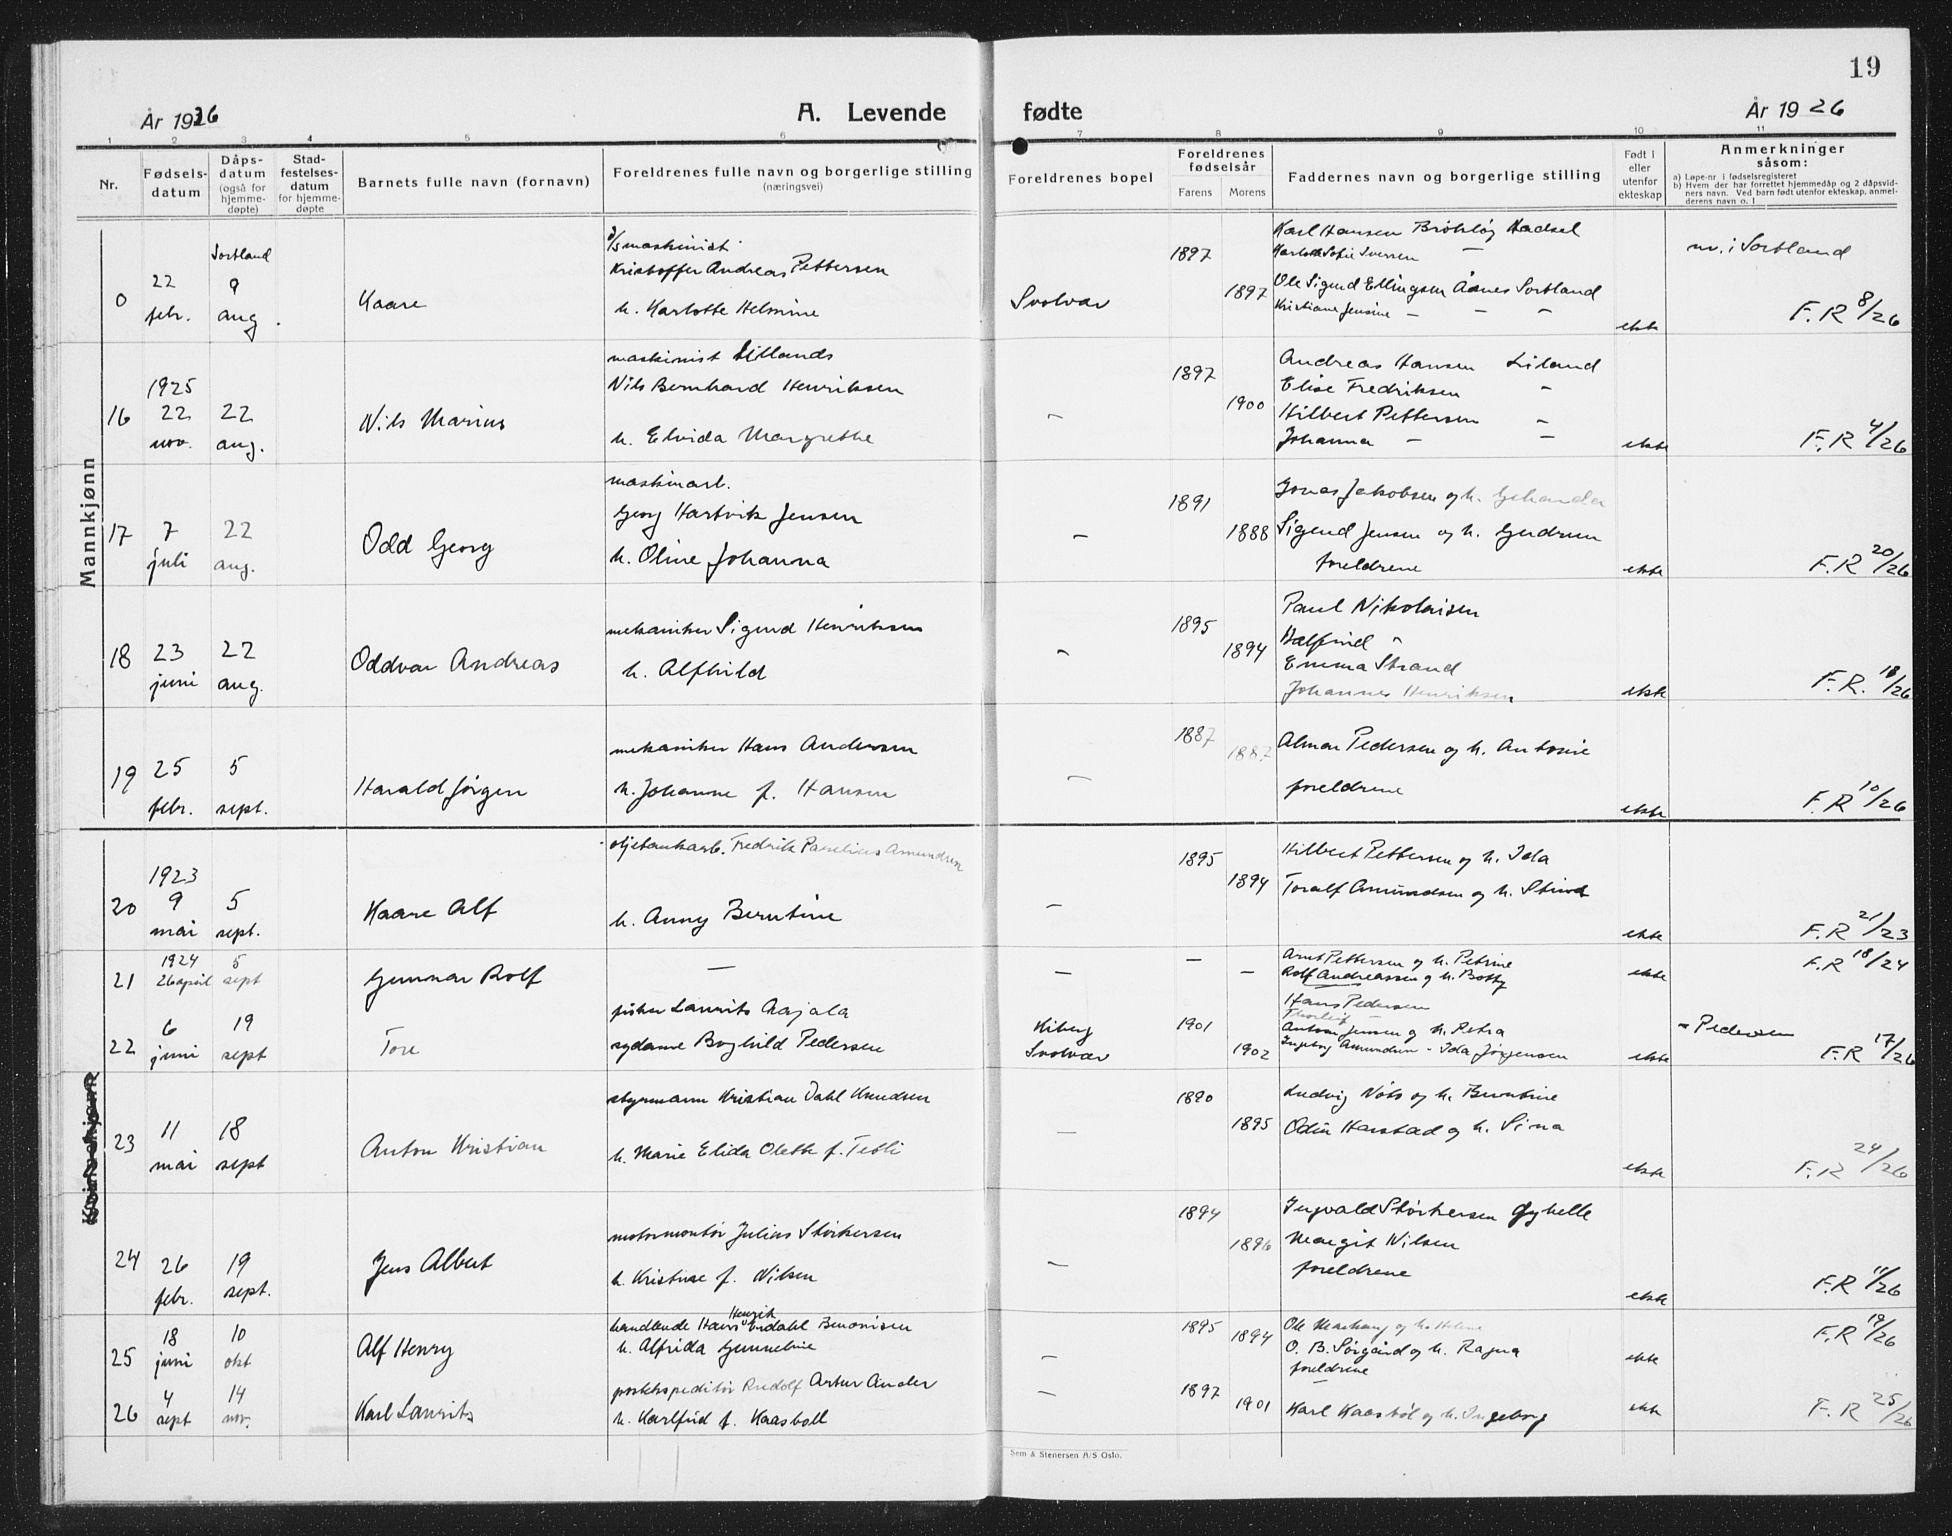 19
År 1926
A. Levende fødte
År 1926
1 2 3 4 5 6 7 8 9 10 11
Nr.
Fødsels-
datum
Dåps-
datum
(også for
hjemme-
døpte)
Stad-
festelses-
datum
for hjemme-
døpte
Barnets fulle navn (fornavn)
Foreldrenes fulle navn og borgerlige stilling
(næringsvei)
Foreldrenes bopel
Foreldrenes
fødselsår
Farens
Morens
Faddernes navn og borgerlige stilling
Født i
eller
utenfor
ekteskap
Anmerkninger
såsom:
a) Løpe-nr i fødselsregisteret
b) Hvem der har forrettet hjemmedåp og 2 dåpsvid-
ners navn. Ved barn født utenfor ekteskap, anmel-
derens navn o. l
Mannkjønn
0
22
febr.
Sortland
9
aug.
Kaare
maskinist
Kristoffer Andreas Pettersen
h. Karlotte Helmine
Svolvær
1897
1897
Karl Hansen Hadsel
Sofie Iversen
Ole Sigurd Ellingsen Åsnes Sortland
Kristiane Jensine — — —
ekte
m. i Sortland
F.R 8/26
16
1925
22
nov.
22
aug.
Nils Marius
maskinist
Nils Bernhard Henriksen
h. Elvida Margrethe
—
1897
1900
Andreas Hansen Liland
Elise Fredriksen "
Hilbert Pettersen —
Johanna — —
ekte
F.R 4/26
17
7
juli
22
aug.
Odd Georg
maskinarb.
Georg Hartvik Jensen
h. Oline Johanna
—
1891
1888
Jonas Jakobsen og h.
Sigurd Jensen og h. Gudrun
foreldrene
ekte
F.R 20/26
18
23
juni
22
aug.
Oddvar Andreas
mekaniker Sigurd Henriksen
h. Alfhild
—
1895
1894
Paul Nikolaisen
Halfrid "
Emma Strand
Johannes Henriksen
ekte
F.R. 18/26
19
25
febr.
5
sept.
Harald Jørgen
mekaniker Hans Andersen
h. Johanne f. Hansen
—
1887
1887
Almar Pedersen og h. Antonie
foreldrene
ekte
F.R 10/26
20
1923
9
mai
5
sept.
Kaare Alf
oljetankarb. Fredrik Amundsen
h. Anny Berntine
—
1895
1894
Hilbert Pettersen og h. Ida
Toralf Amundsen og h.
ekte
F.R 21/23
21
1924
26 april
5
sept
Gunnar Rolf
—
—
—
—
Arnt Pettersen og h. Petrine
Rolf Andreassen og h. Betty
ekte
F.R 18/24
22
6
juni
19
sept
Tore
fisker Laurits Aajala
sydame Boghild Pedersen
Kiberg
Svolvær
1901
1902
Hans Pedersen
Thorleif —
Anton Jensen og h. Petra
Ingeborg Amundsen - Ida Jørgensen
ekte
Pedersen
F.R 17/26
Kvinnekjønn
23
11
mai
18
sept
Anton Kristian
styrmann Kristian Dahl Knudsen
h. Marie Elida Olette f. Tetli
—
1890
1895
Ludvig og h. Berntine
Odin Harstad og h. Sina
ekte
F.R 24/26
24
26
febr.
19
sept.
Jens Albert
motormontør Julius Størkersen
h. Kristine f. Nilsen
—
1894
1896
Ingvald Størkersen
Margit Nilsen
foreldrene
ekte
F.R 11/26
25
18
juni
10
okt
Alf Henry
Henrik
handlende Hans Benonisen
h. Alfrida
—
1895
1894
Ole og h. Helene
O. B. Sørgård og h. Ragna
foreldrene
ekte
F.R 19/26
26
4
sept
14
nov.
Karl Laurits
postekspeditør Rudolf Artur Ander
h. Karlfrid f. Kaasbøll
—
1897
1901
Karl Kaasbøl og h. Ingeborg
ekte
F.R 25/26
Sem & Stenersen A/S Oslo.